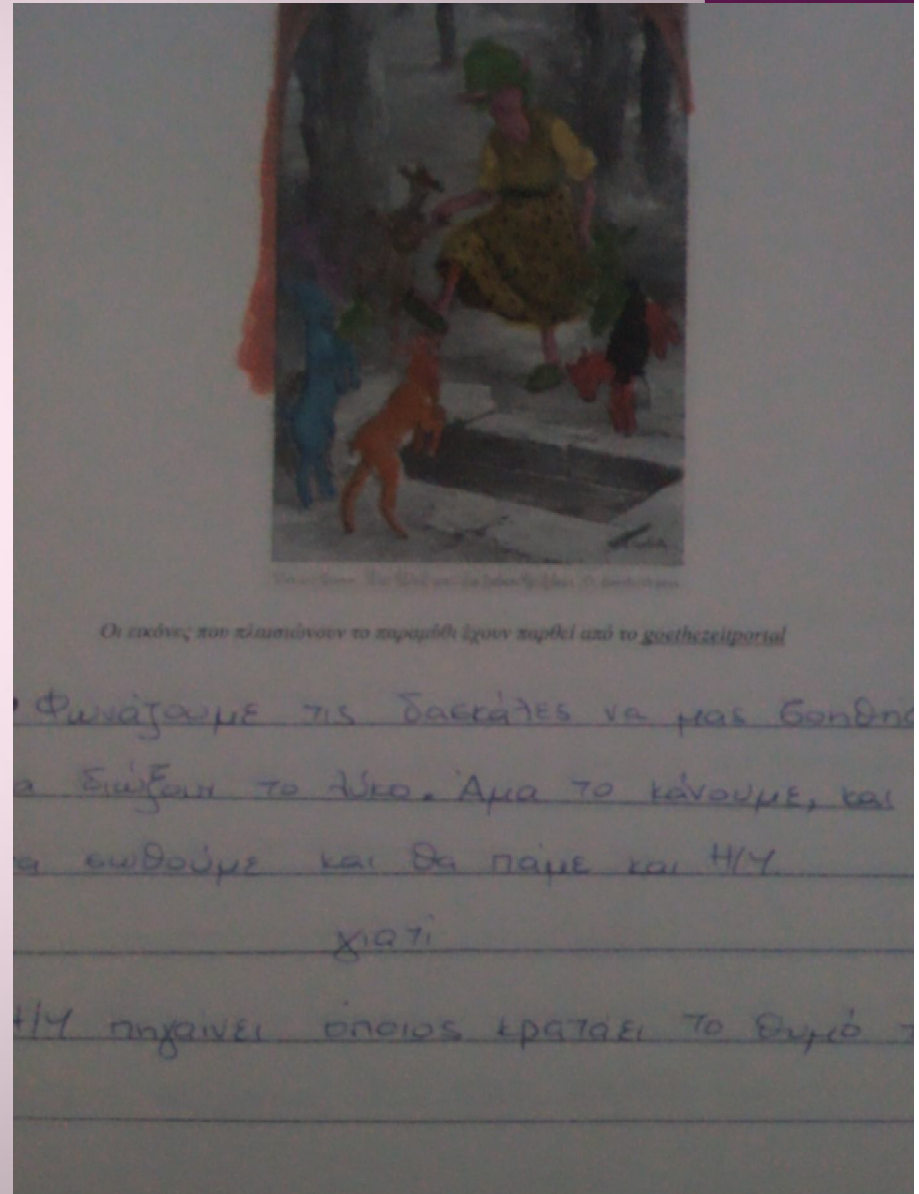 Οι εικόνες που πλαισιώνουν το παραμύθι έχουν παρθεί από το goethezeitportal
• Φωνάζουμε τις δασκάλες να μας βοηθήσ
α διώξουν το λύκο. Άμα το κάνουμε, και
α σωθούμε και θα πάμε και Η/Υ.
γιατί
Η/Υ πηγαίνει όποιος κρατάει το θυμό τ